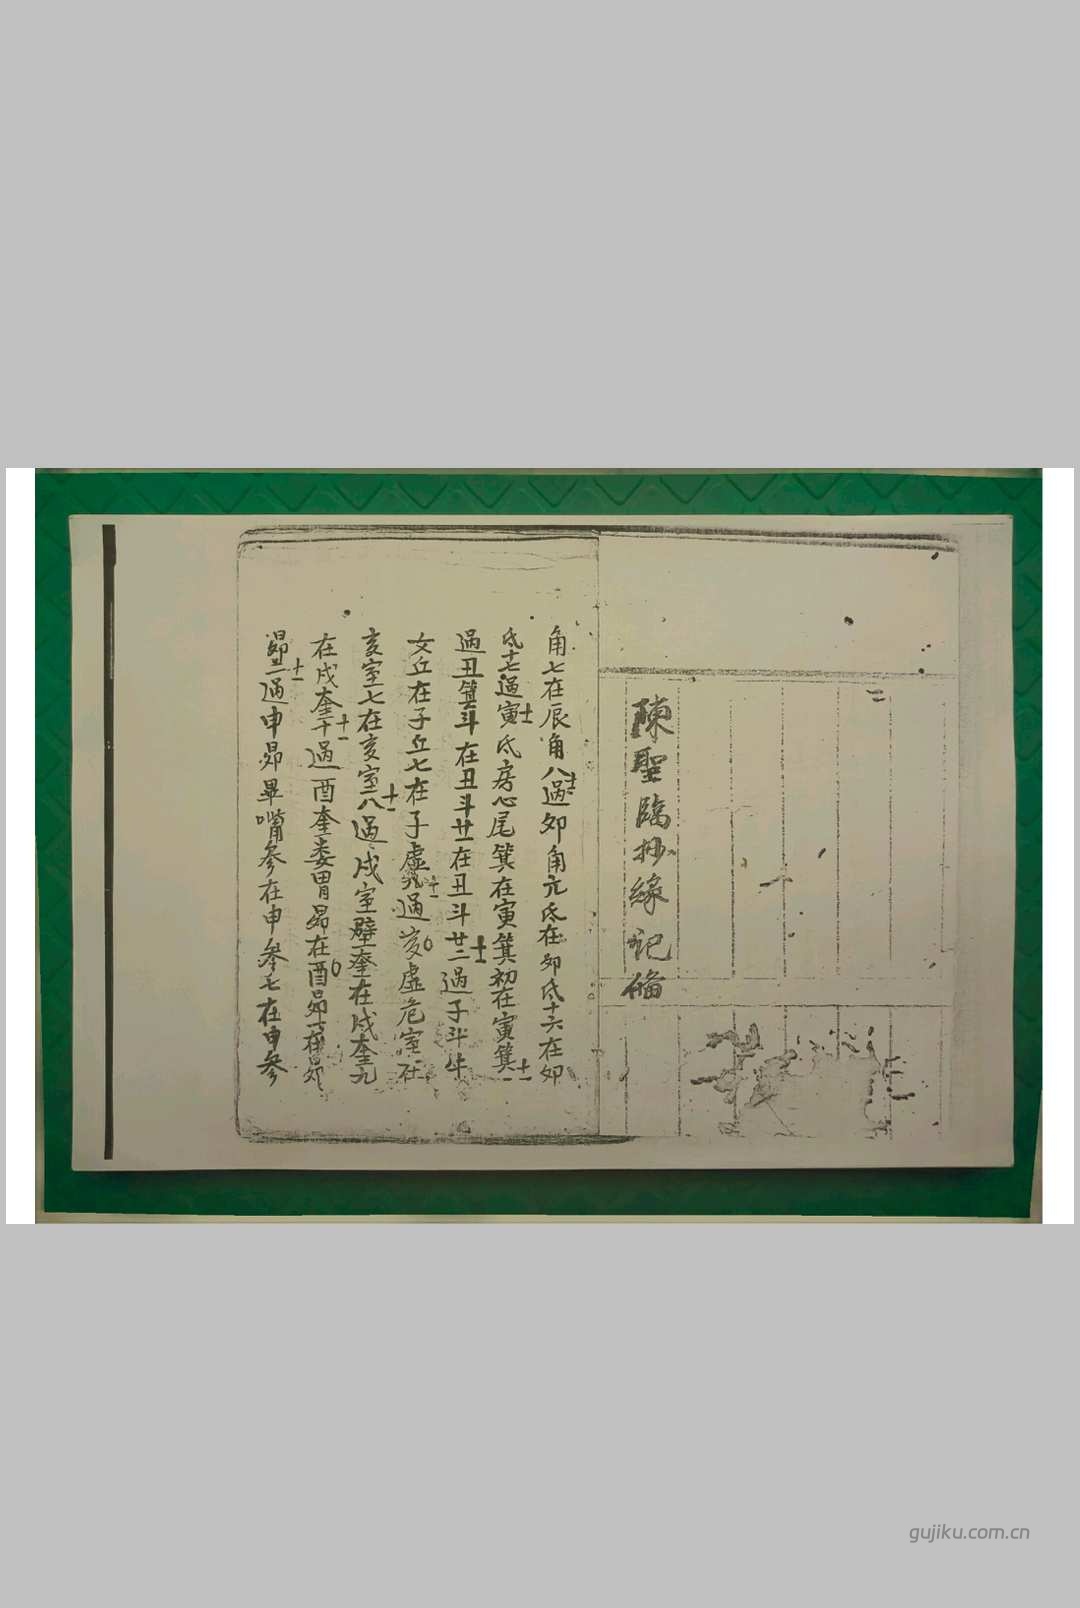 陳聖臨抄緣記脩
角七在辰角八過卯角亢氐在卯氐十六在卯
氐十七過寅氐房心尾箕在寅箕初在寅箕一
過丑箕斗在丑斗廿一在丑斗廿二過子斗牛
女丘在子丘七在子虛九過亥虛危室在
亥室七在亥室八過戌室壁奎在戌奎九
在戌奎十過酉奎婁胃昴在酉昴一在
昴二過申昴畢嘴參在申參七在申參
gujiku.com.cn